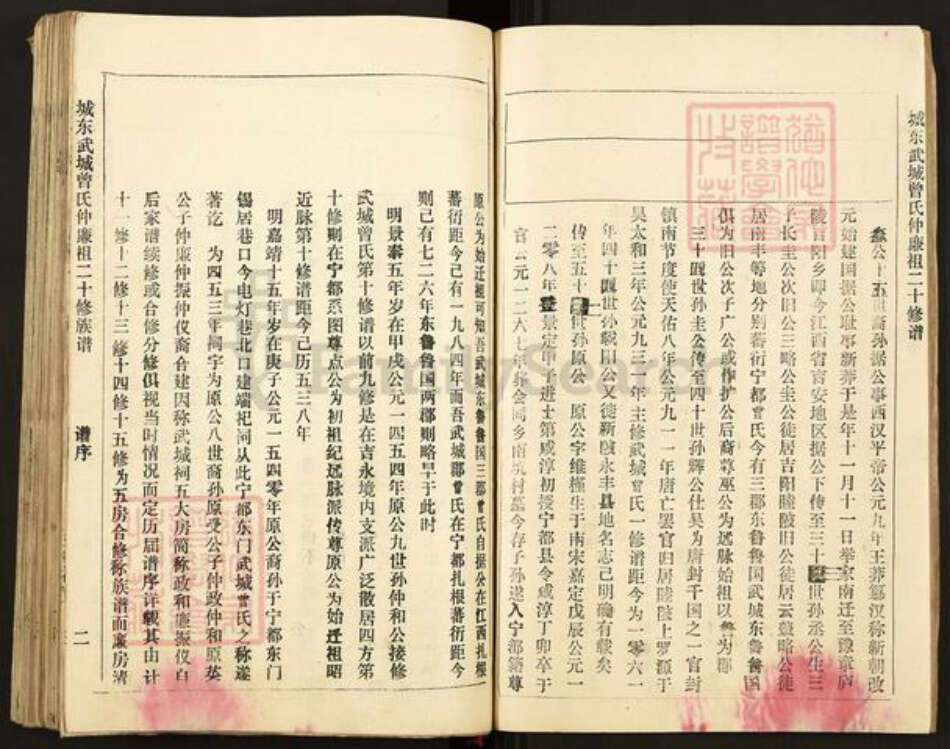 城东武城曾氏仲廉祖二十修谱
公十五世裔孙据公事西汉平帝公元九年王莽篡汉称新朝改
元始建国据公耻事新莽于是年十一月十一日举家南迁至豫章庐
陵吉阳乡即今江西省吉安地区据公下传至三十世孙丞公生三
子长圭公次旧公三略公圭公徒居吉阳睦陂旧公徒居云盖略公徒
居南丰等地分别蕃衍宁都曾氏今有三郡东鲁鲁国武城东鲁鲁国
俱为旧公次子广公或作扩公后裔尊巫公为远脉始祖以鲁为郡
三十四世孙圭公传至四十世孙辉公仕吴为唐封千国之一官封
镇南节度使天佑八年公元九一一年唐亡罢官归居睦陂上罗源于
吴太和三年公元九三一年主修武城曾氏一修谱距今为一零六一
年四十四世孙 旧公又徒新 永丰县地名志己明确有载矣
传至五十 世孙原公 原公字维槿生于南宋嘉定戊辰公元一
二零八年 景定甲子进士第咸淳初授宁都县令咸淳丁卯卒于
官公元一二六七年 金同乡南坑村墓今存子孙遂入宁都籍尊
原公为始迁祖可知吾武城东鲁鲁国三郡曾氏自据公在江西扎根
蕃衍距今己有一九八四年而吾武城郡曾氏在宁都扎根蕃衍距今
则己有七二六年东鲁鲁国两郡则略早于此时
明景泰五年岁在甲戌公元一四五四年原公九世孙仲和公接修
武城曾氏第十修谱以前九修是在吉永境内支派广泛散居四方第
十修则在宁都系图尊点公为初祖纪远脉派传尊原公为始迁祖昭
近脉第十修谱距今己历五三八年
明嘉靖十五年岁在庚子公元一五四零年原公裔孙于宁都东门
锡居巷口今电灯巷北口建端祀祠从此宁都东门武城曾氏之称遂
著讫 为四五三年祠宇为原公八世裔孙原受公子仲政仲和原英
公子仲廉仲振仲仪裔合建因称武城祠五大房简称政和廉振仪自
后家谱续修或合修分修俱视当时情况而定历届谱序详载其由计
十一修十二修十三修十四修十五修为五房合修称族谱而廉房清
城东武城曾氏仲廉祖二十修族谱 谱序 二